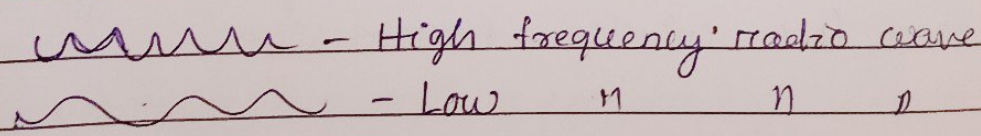 - High frequency radio wave
- Low " " "